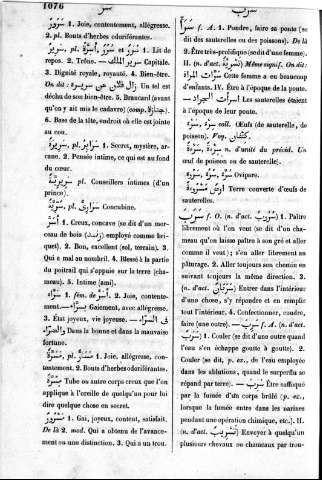 1076
سر
سرب
سُرُورٌ 1. Joie, contentement, allégresse.
2. pl. Bouts d'herbes odoriférantes.
سَرِيرٌ pl. أَسِرَّةٌ et سُرُرٌ 1. Lit de
repos. 2. Trône. — سرير الملك Capitale.
3. Dignité royale, royauté. 4. Bien-être.
On dit : زال فلان عن سريره Un tel est
déchu de son bien-être. 5. Brancard (avant
qu'on y ait mis le cadavre) (comp. جنازة).
6. Base de la tête, endroit où elle est jointe
au cou.
سَرِيرَةٌ pl. سَرَائِرُ 1. Secret, mystère, ar-
cane. 2. Pensée intime, ce qui est au fond
du cœur.
pl. Conseillers intimes (d'un
prince).
سُرِّيَّةٌ pl. سراري Concubine.
أَسَرُّ 1. Creux, concave (se dit d'un mor-
ceau de bois (زند) employé comme bri-
quet). 2. Bon, excellent (sol, terrain). 3.
Qui a mal au nombril. 4. Blessé à la partie
du poitrail qui s'appuie sur la terre (cha-
meau). 5. Intime (ami).
سَرَّاءُ 1. fém. de أسر. 2. Joie, contente-
ment. — Gaiement, avec allégresse.
3. État joyeux, vie joyeuse. — في السراء
والضراء Dans la bonne et dans la mauvaise
fortune.
مَسَرَّةٌ pl. 1. Joie, allégresse, con-
tentement. 2. Bouts d'herbes odoriférantes.
مِسَرَّةٌ Tube ou autre corps creux que l'on
applique à l'oreille de quelqu'un pour lui
dire quelque chose en secret.
مَسْرُورٌ 1. Gai, joyeux, content, satisfait.
De là 2. mod. Qui a obtenu de l'avance-
ment ou une distinction. 3. Qui a un trou.
سَرَأَ f. A. 1. Pondre, faire sa ponte (se
dit des sauterelles ou des poissons). De là
2. Être très-prolifique (se dit d'une femme).
II. (n. d'act. تسرئة) Même signif. On dit :
سرأت المرأة Cette femme a eu beaucoup
d'enfants. IV. Être à l'époque de la ponte.
أسرأت الجراد — Les sauterelles étaient
à l'époque de leur ponte.
سَرْءٌ, سِرْءٌ coll. Œufs (de sauterelle, de
poisson). Voy.
سَرْأَةٌ, سِرْأَةٌ n. d'unité du précéd. Un
œuf de poisson ou de sauterelle.
Ovipare.
أرض مسروءة Terre couverte d'œufs de
sauterelles.
سَرَبَ f. O. (n. d'act. سُرُوبٌ) 1. Paître
librement où l'on veut (se dit d'un cha-
meau qu'on laisse paître à son gré et aller
comme il veut) ; s'en aller librement au
pâturage. 2. Aller toujours son chemin en
suivant toujours la direction. 3.
(n. d'act. سَرَبَانٌ) Entrer dans l'intérieur
d'une chose, s'y répandre et en remplir
tout l'intérieur. 4. Confectionner, coudre,
faire (une outre). — سَرِبَ f. A. (n. d'act.
سَرَبٌ) 1. Couler (se dit d'une outre quand
l'eau s'en échappe goutte à goutte). 2.
Couler (se dit, p. ex., de l'eau employée
dans les ablutions, quand le surplus
se répand par terre). — سُرِبَ Être suffoqué
par la fumée d'un corps brûlé (p. ex.,
lorsque la fumée entre dans les narines
pendant une opération chimique, etc.). II.
(n. d'act. تسريب) Envoyer à quelqu'un
plusieurs chevaux ou chameaux par trou-